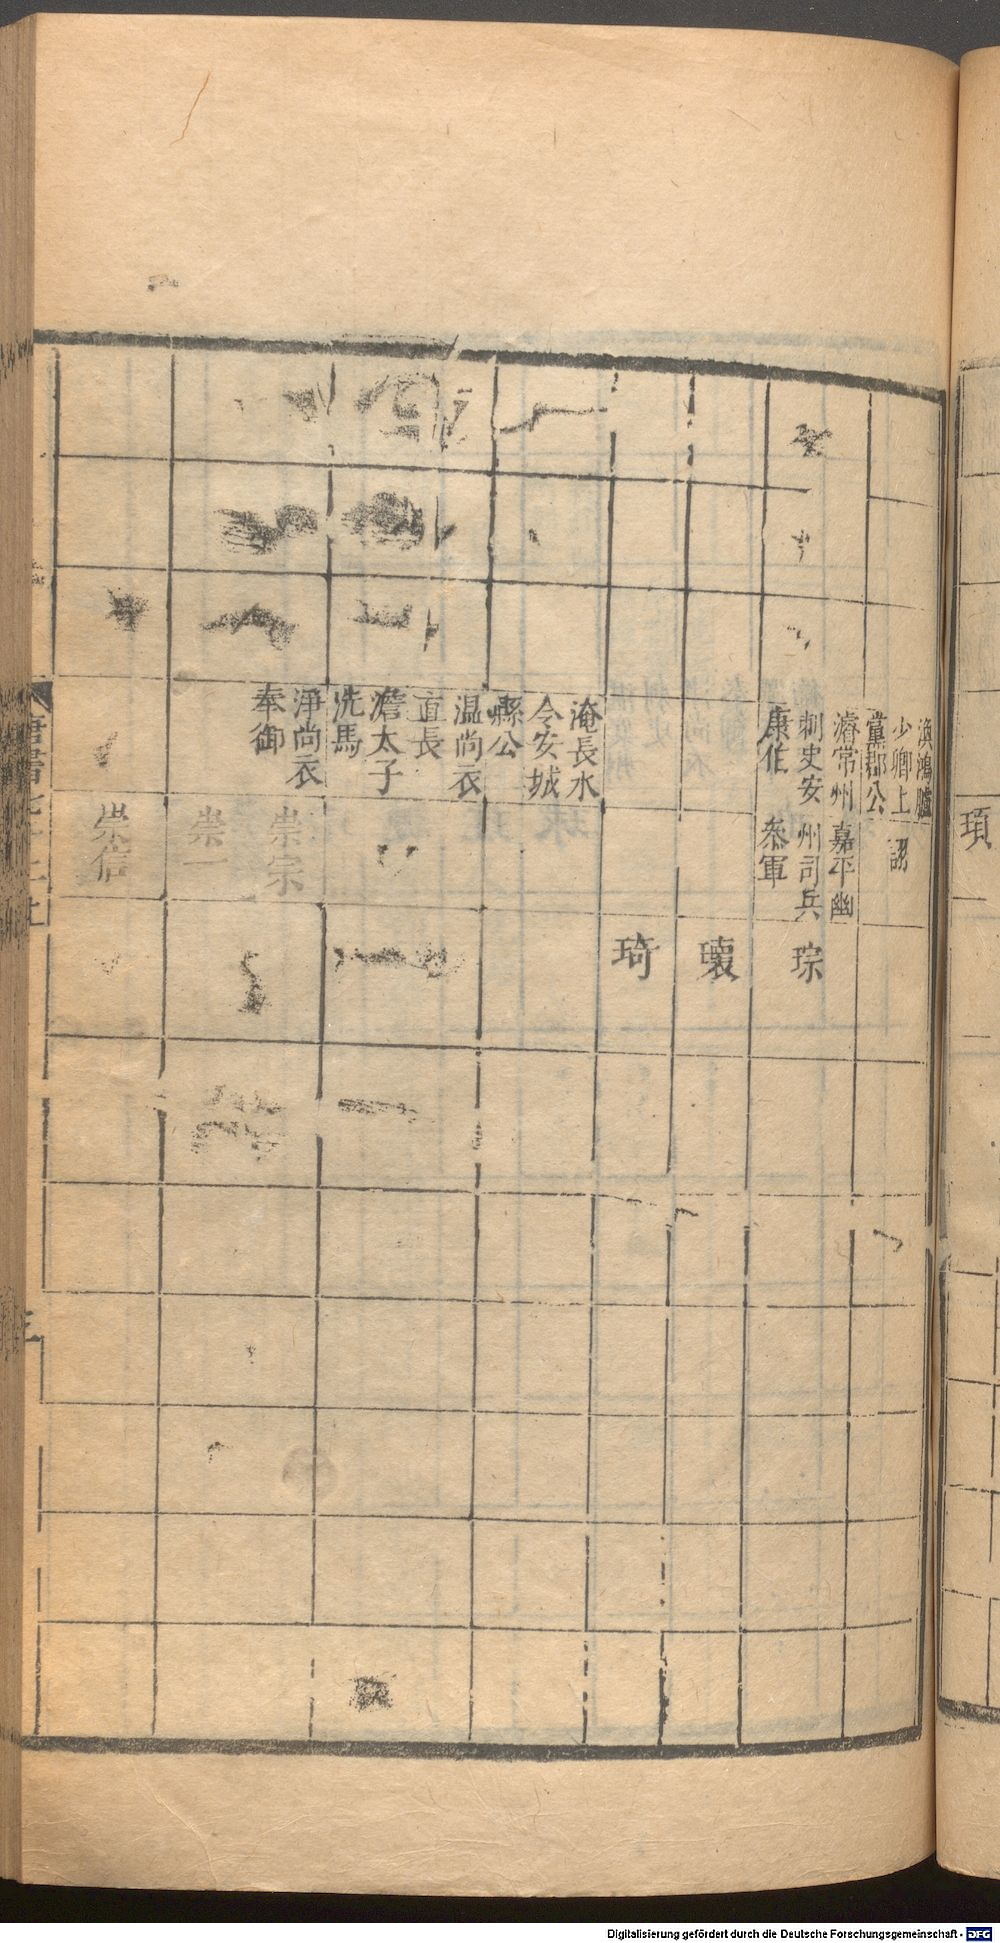 渙鴻臚
少卿上
黨郡公
詡
濬常州
刺史安
康伯
嘉平幽
州司兵
叅軍
琮
瓌
琦
淹長水
令安城
縣公
温尚衣
直長
澹太子
洗馬
淨尚衣
奉御
崇宗
崇一
崇信
頊
唐書七十二上
Digitalisierung gefördert durch die Deutsche Forschungsgemeinschaft - DFG